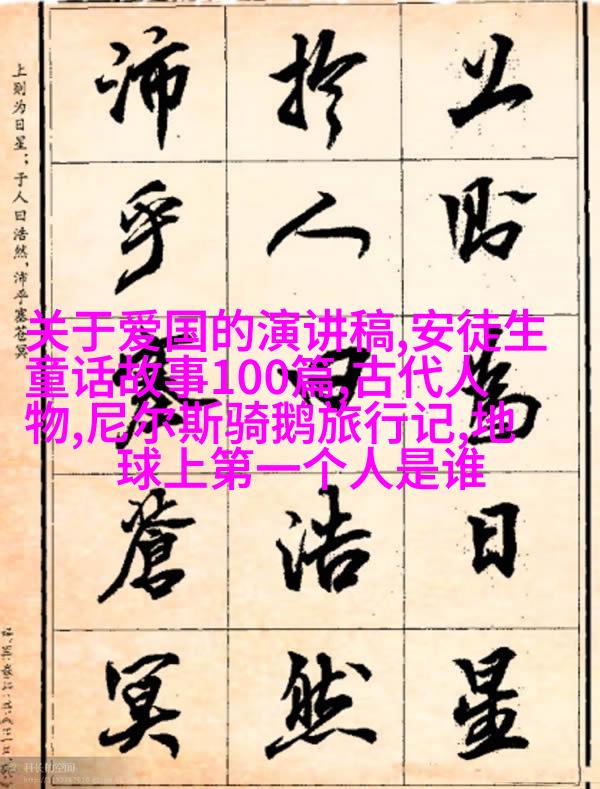 上则為日星
於人曰浩然
沛乎塞蒼冥
上则为日星；于人曰浩然，沛乎塞苍冥
关于爱国的演讲稿,安徒生
童话故事100篇,古代人
物,尼尔斯骑鹅旅行记,地
球上第一个人是谁
科长的空间